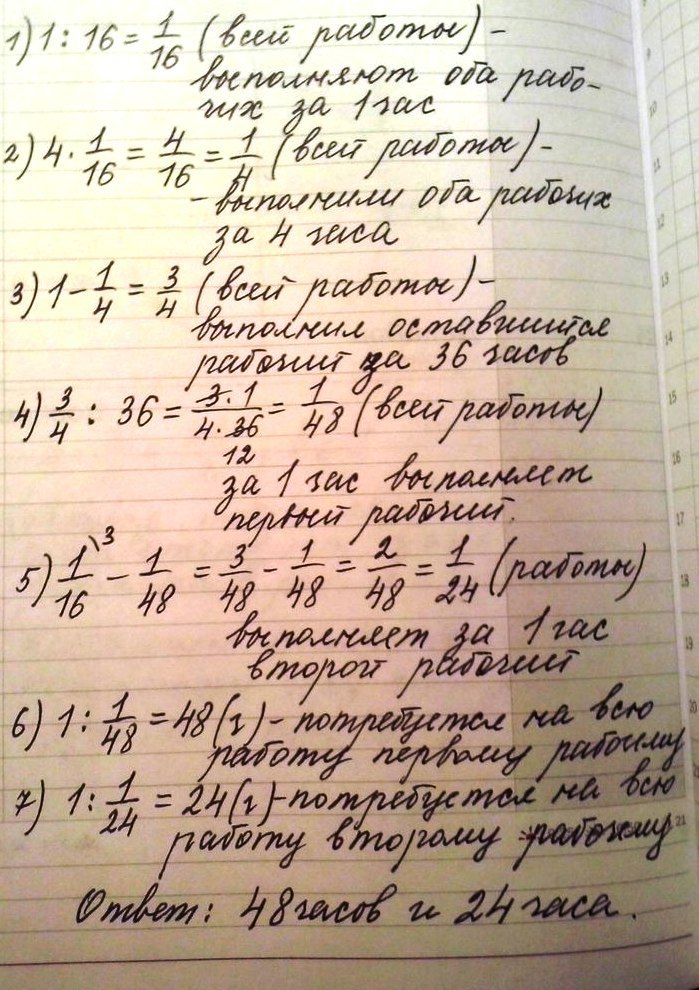 1) 1 : 16 = 1/16 (всей работы) –
выполняют оба рабо-
чих за 1 час
2) 4 · 1/16 = 4/16 = 1/4 (всей работы) –
– выполнили оба рабочих
за 4 часа
3) 1 – 1/4 = 3/4 (всей работы) –
выполнил оставшийся
рабочий за 36 часов
4) 3/4 : 36 = 3 · 1/4 · 36 = 1/48 (всей работы)
12
за 1 час выполняет
первый рабочий.
5) 1/16 \3 – 1/48 = 3/48 – 1/48 = 2/48 = 1/24 (работы)
выполняет за 1 час
второй рабочий
6) 1 : 1/48 = 48 (ч) – потребуется на всю
работу первому рабочему
7) 1 : 1/24 = 24 (ч) – потребуется на всю
работу второму рабочему
Ответ: 48 часов и 24 часа.
9
10
11
12
13
14
15
16
17
18
19
20
21